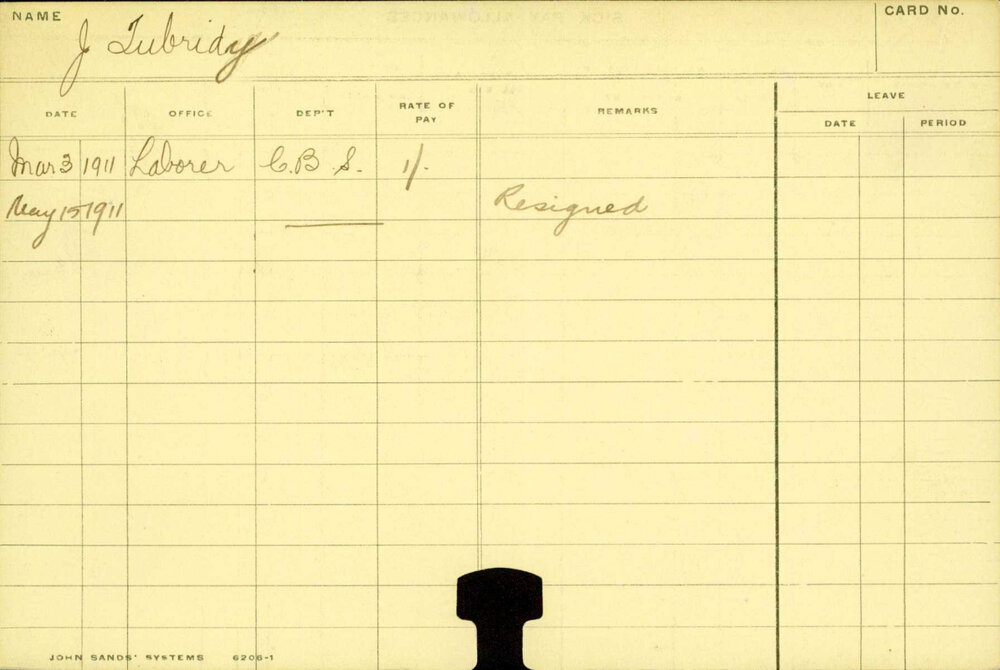 NAME J Tubridy CARD No.
LEAVE
DATE OFFICE DEP'T RATE OF PAY REMARKS DATE PERIOD
Mar 3 1911 Laborer C.B.S. 1/-
May 15 1911 Resigned
JOHN SANDS' SYSTEMS 6206-1